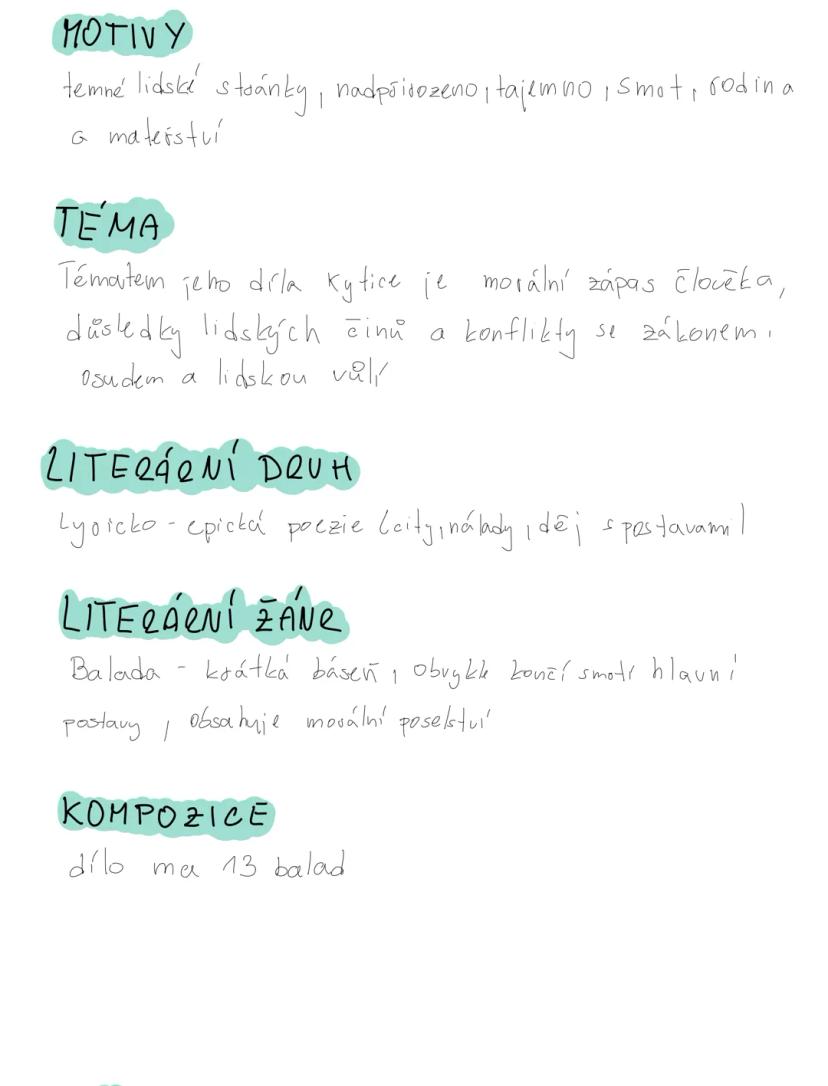 MOTIVY
temné lidské stránky, nadpřirozeno, tajemno, smrt, rodina
a mateřství
TÉMA
Tématem jeho díla Kytice je morální zápas člověka,
důsledky lidských činů a konflikty se zákonem,
osudem a lidskou vůlí
LITERÁRNÍ DRUH
Lyricko-epická poezie (city, nálady, děj s postavami)
LITERÁRNÍ ŽÁNR
Balada - krátká báseň, obvykle končí smrtí hlavní
postavy, obsahuje morální poselství
KOMPOZICE
dílo ma 13 balad